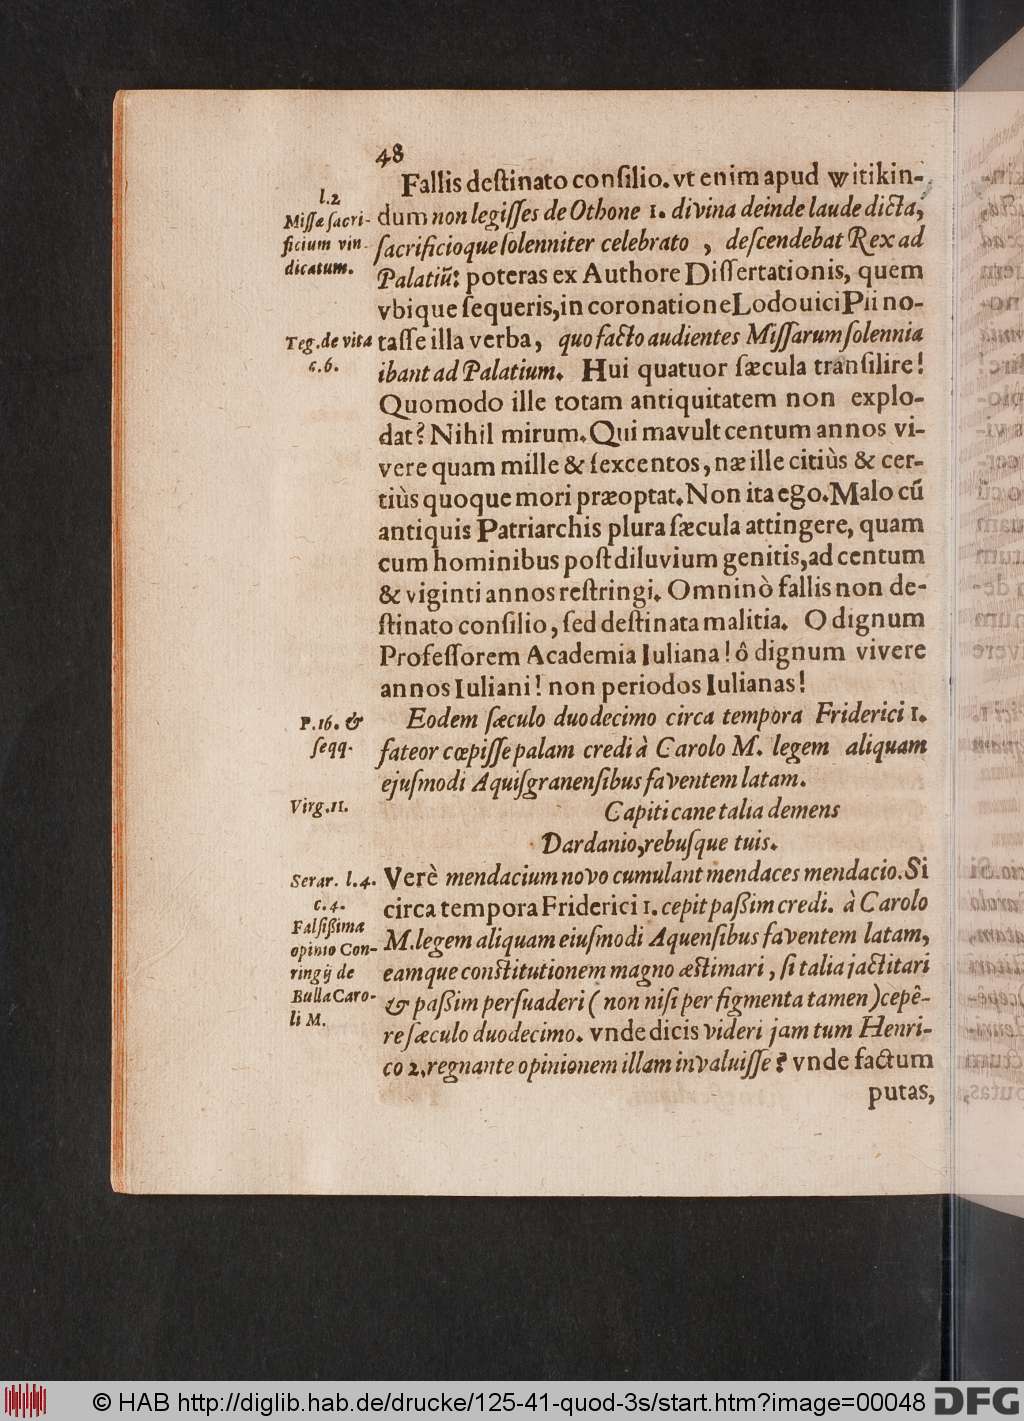 48
Fallis destinato consilio. vt enim apud witikin-
l.2
Missæ sacri-
ficium vin-
dicatum.
dum non legisses de Othone 1. divina deinde laude dicta,
sacrificioque solenniter celebrato , descendebat Rex ad
Palatiū: poteras ex Authore Dissertationis, quem
vbique sequeris, in coronatione Lodouici Pii no-
Teg. de vita
c.6.
tasse illa verba, quo facto audientes Missarum solennia
ibant ad Palatium. Hui quatuor sæcula transilire!
Quomodo ille totam antiquitatem non explo-
dat? Nihil mirum. Qui mavult centum annos vi-
vere quam mille & sexcentos, næ ille citiùs & cer-
tiùs quoque mori præoptat. Non ita ego. Malo cū
antiquis Patriarchis plura sæcula attingere, quam
cum hominibus post diluvium genitis, ad centum
& viginti annos restringi. Omninò fallis non de-
stinato consilio, sed destinata malitia. O dignum
Professorem Academia Iuliana! ô dignum vivere
annos Iuliani! non periodos Iulianas!
P.16. &
seqq.
Eodem sæculo duodecimo circa tempora Friderici 1.
fateor cœpisse palam credi à Carolo M. legem aliquam
ejusmodi Aquisgranensibus faventem latam.
Virg.11.
Capiti cane talia demens
Dardanio, rebusque tuis.
Serar. l.4.
c.4.
Falsißima
opinio Con-
ringij de
Bulla Caro-
li M.
Verè mendacium novo cumulant mendaces mendacio. Si
circa tempora Friderici 1. cepit paßim credi. à Carolo
M. legem aliquam eiusmodi Aquensibus faventem latam,
eamque constitutionem magno æstimari, si talia jactitari
& paßim persuaderi ( non nisi per figmenta tamen ) cepê-
re sæculo duodecimo. vnde dicis videri jam tum Henri-
co 2. regnante opinionem illam invaluisse? vnde factum
putas,
© HAB http://diglib.hab.de/drucke/125-41-quod-3s/start.htm?image=00048
DFG